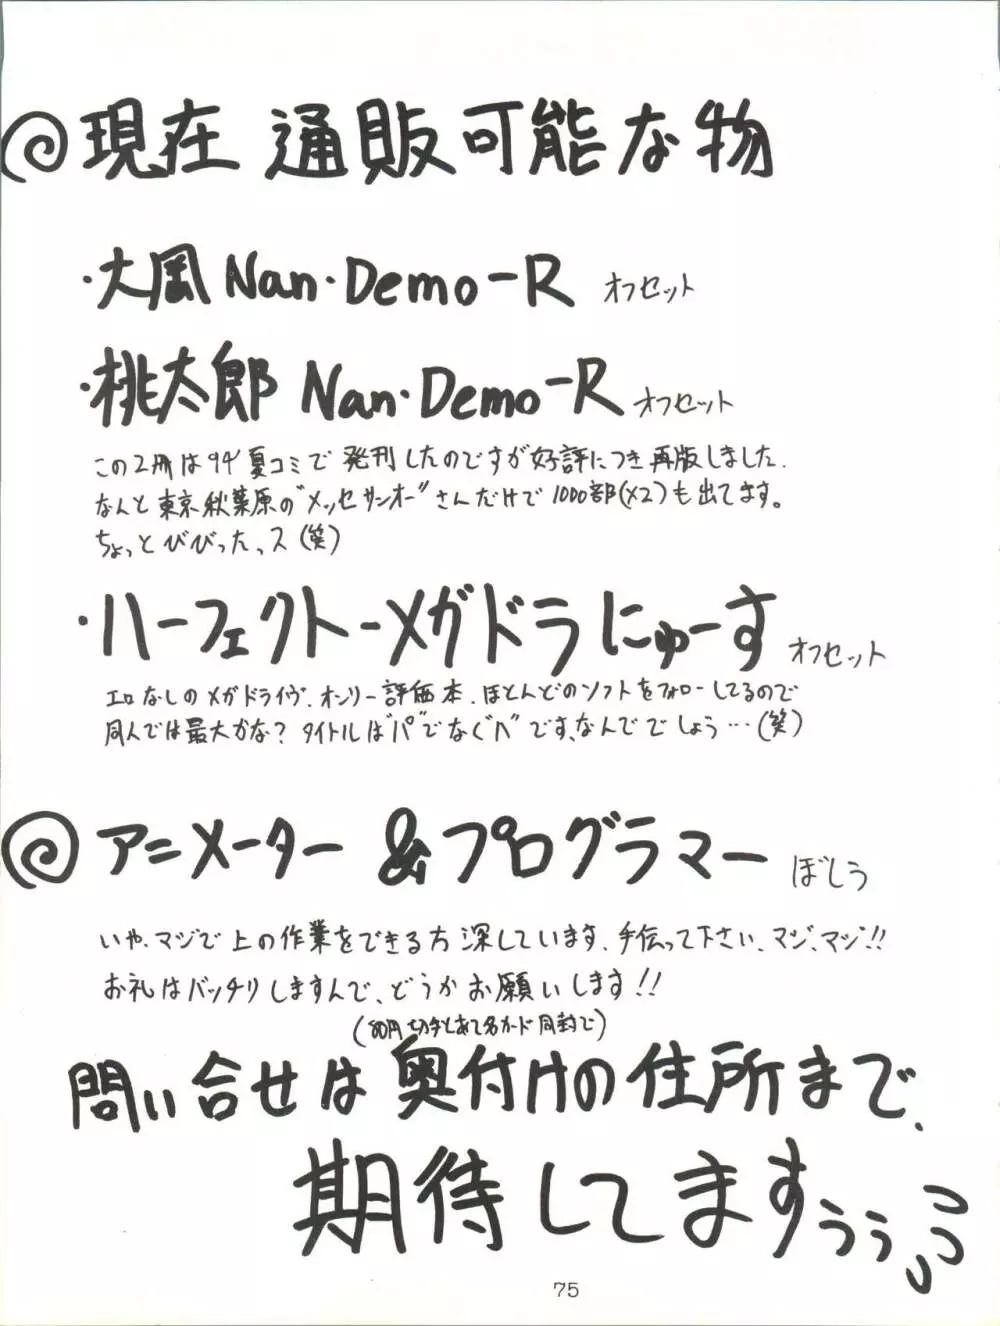 現在 通販可能な物
・大凮 Nan・Demo-R オフセット
・桃太郎 Nan・Demo-R オフセット
この2冊は94夏コミで発刊したのですが好評につき再版しました.
なんと東京秋葉原の"メッセサンオー"さんだけで1000部(×2)も出てます。
ちょっとびびったっス(笑)
・ハーフェクトーメガドラにゅーす オフセット
エロなしのメガドライヴ.オンリー評価本.ほとんどのソフトをフォローしてるので
同人では最大かな? タイトルは"パ"でなく"ハ"です、なんででしょう…(笑)
アニメーター &プログラマー ぼしう
いや、マジで上の作業をできる方深しています、手伝って下さい、マジ、マジ!!
お礼はバッチリしますんで、どうかお願いします!!
(80円切手とあて名カード同封で)
問い合せは奥付けの住所まで、
期待してますぅぅぅっっ
75